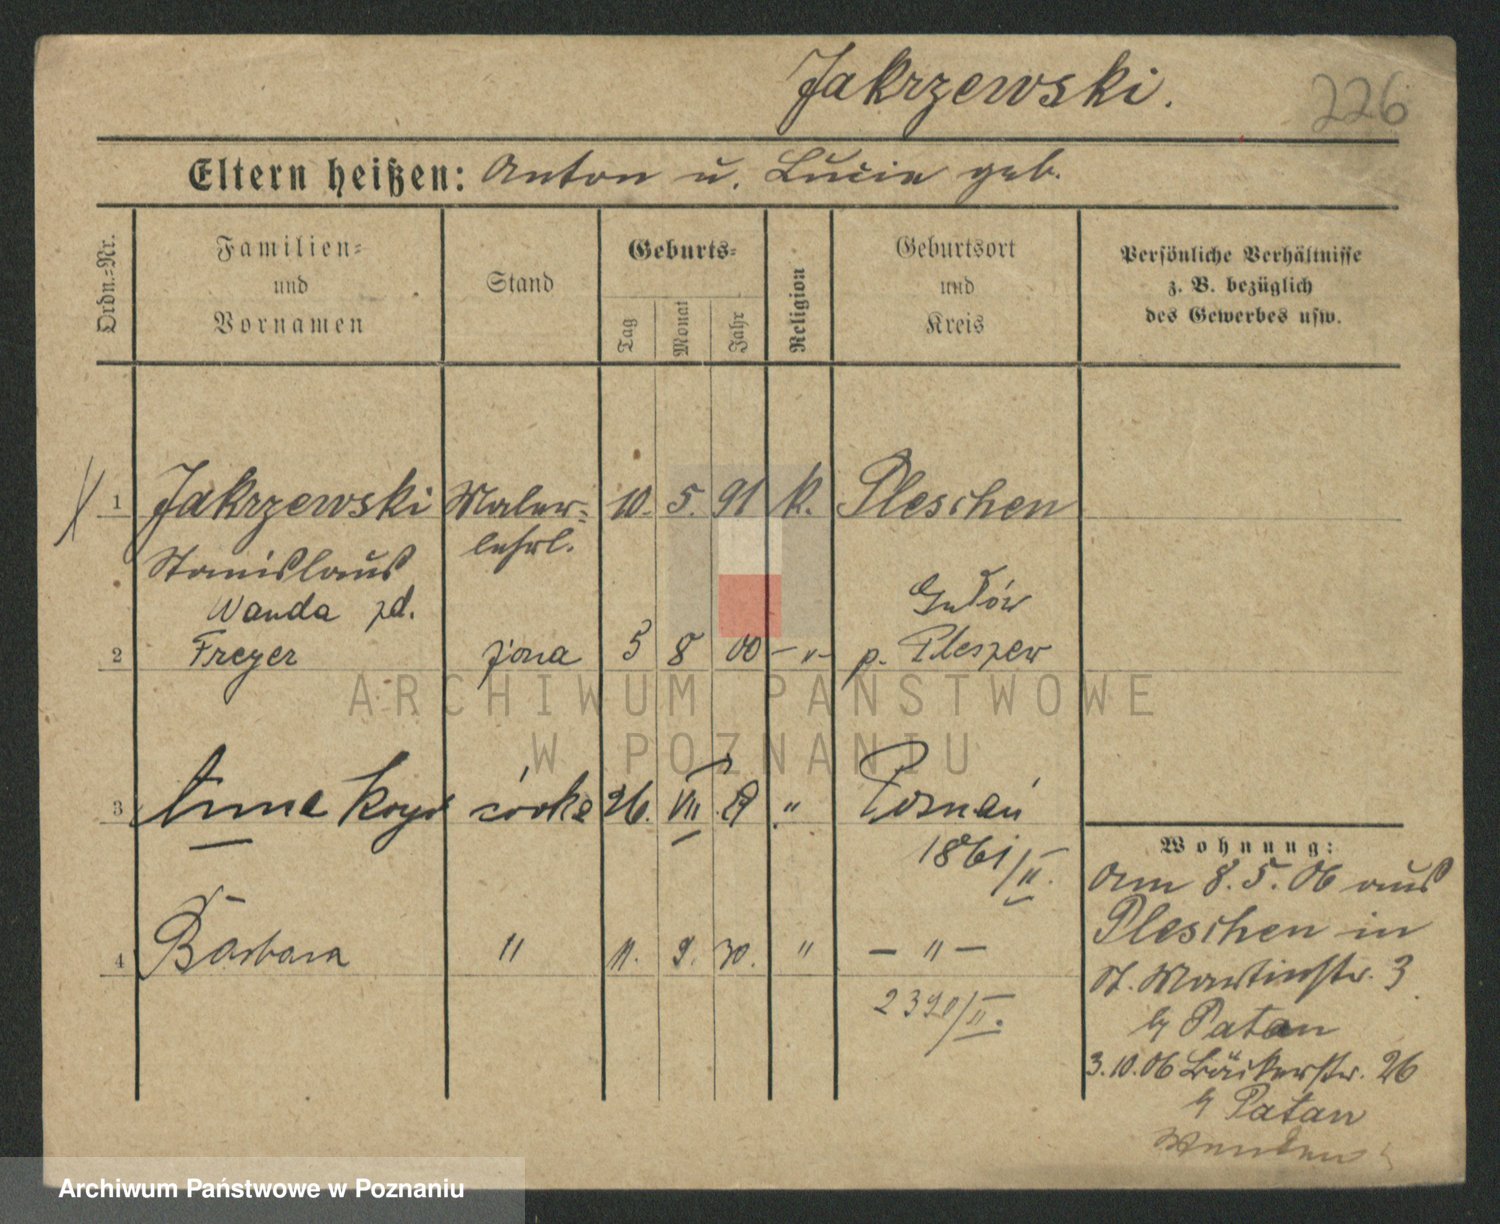 Jakrzewski.
226
Eltern heißen: Anton u. Lucie geb.
Ordn.=Nr.
Familien=
und
Vornamen
Stand
Geburts=
Tag
Monat
Jahr
Religion
Geburtsort
und
Kreis
Persönliche Verhältnisse
z. B. bezüglich
des Gewerbes usw.
1 Jakrzewski Maler= 10. 5. 91 k. Pleschen
Stanislaus lehrl.
Wanda zd.
2 Freyer żona 5 8 00 -"- p. Pleszew
3 Anna córka 26. VIII 29 " Poznań
1861/II.
4 Barbara " 11. 9. 30. " - " -
2390/II.
Wohnung:
Am 8. 5. 06 aus
Pleschen in
St. Martinstr. 3
b/ Patan
3.10.06 Bäckerstr. 26
b/ Patan
Wenden
ARCHIWUM PAŃSTWOWE
W POZNANIU
Archiwum Państwowe w Poznaniu